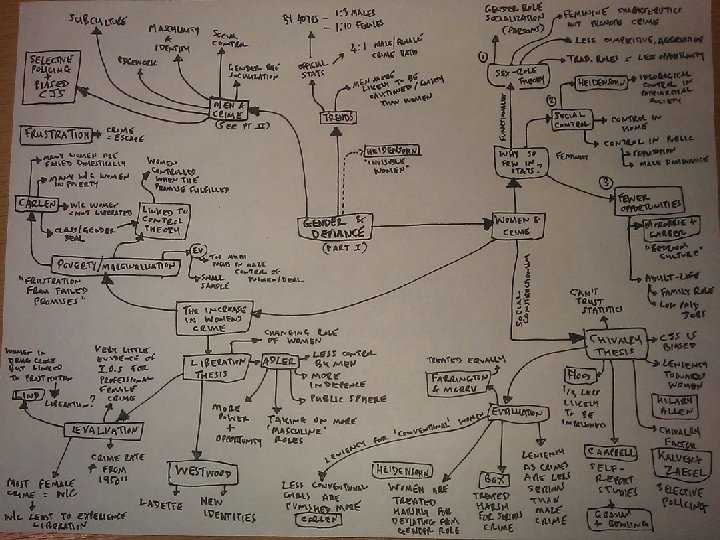 SUBCULTURE
EDGEWORK
MASCULINITY
&
IDENTITY
SOCIAL
CONTROL
GENDER ROLE
SOCIALISATION
SELECTIVE
POLICING
+
BIASED
CJS
MEN &
CRIME
(SEE PT II)
BY 40YRS - 1:3 MALES
- 1:10 FEMALES
OFFICIAL
STATS
4:1 MALE/FEMALE
CRIME RATIO
MEN MORE
LIKELY TO BE
THAN WOMEN
TRENDS
HEIDENSOHN
"INVISIBLE
WOMEN"
GENDER &
DEVIANCE
(PART I)
GENDER ROLE
SOCIALISATION
(PARSONS)
FEMININE CHARACTERISTICS
NOT PROMOTE CRIME
LESS COMPETITIVE, AGGRESSIVE
TRAD. ROLES = LESS OPPORTUNITY
①
SEX-ROLE
THEORY
FUNCTIONALISM
HEIDENSOHN
IDEOLOGICAL
CONTROL IN
PATRIARCHAL
SOCIETY
②
SOCIAL
CONTROL
CONTROL IN
HOME
CONTROL IN PUBLIC
- REPUTATION
- MALE DOMINANCE
WHY SO
FEW IN
STATS?
FEMINIST
③
FEWER
OPPORTUNITIES
MCROBBIE +
GARBER
"BEDROOM
CULTURE"
ADULT-LIFE
FAMILY ROLE
LOW PAID
JOBS
WOMEN &
CRIME
SOCIAL
CONSTRUCTIONISM
FRUSTRATION
CRIME
= ESCAPE
MANY WOMEN
FAILED DOMESTICALLY
MANY W/C WOMEN
IN POVERTY
CARLEN
W/C WOMEN
NOT LIBERATED
CLASS/GENDER
DEAL
WOMEN
CONTROLLED
WHEN THE
PROMISE FULFILLED
LINKED TO
CONTROL
THEORY
POVERTY/MARGINALISATION
"FRUSTRATION
FROM FAILED
PROMISES"
EV
TOO MUCH
CONTROL OF
WOMEN/DEAL
SMALL
SAMPLE
THE INCREASE
IN WOMENS
CRIME
LIBERATION
THESIS
CHANGING ROLE
OF WOMEN
ADLER
LESS CONTROL
BY MEN
MORE
PUBLIC SPHERE
MORE
POWER +
OPPORTUNITY
TAKING ON MORE
'MASCULINE'
ROLES
WOMEN IN
DRUG CRIME
BUT LINKED
TO PROSTITUTION
LIBERATION?
VERY LITTLE
EVIDENCE OF
I.O.S FOR
PROFESSIONAL
FEMALE
CRIME
EVALUATION
CRIME RATE
FROM
1950'S
MOST FEMALE
CRIME = W/C
W/C LEAST TO EXPERIENCE
LIBERATION
WESTWOOD
LADETTE
NEW
IDENTITIES
CAN'T
TRUST
STATISTICS
CHIVALRY
THESIS
CJS IS
BIASED
LENIENCY
TOWARDS
WOMEN
HILARY
ALLEN
CHIVALRY
FACTOR
SELECTIVE
POLICING
HOOD
1/3 LESS
LIKELY
TO BE
IMPRISONED
CAMPBELL
SELF-
REPORT
STUDIES
GRAHAM
+ BOWLING
TREATED EQUALLY
FARRINGTON
& MORRIS
EVALUATION
LENIENCY FOR 'CONVENTIONAL' WOMEN
LESS CONVENTIONAL
GIRLS ARE
PUNISHED MORE
CARLEN
HEIDENSOHN
WOMEN ARE
TREATED
HARSHLY FOR
DEVIATING FROM
GENDER ROLE
BOX
TREATED
HARSH
FOR SERIOUS
CRIME
LENIENCY
AS CRIMES
ARE LESS
SERIOUS
THAN
MALE
CRIME